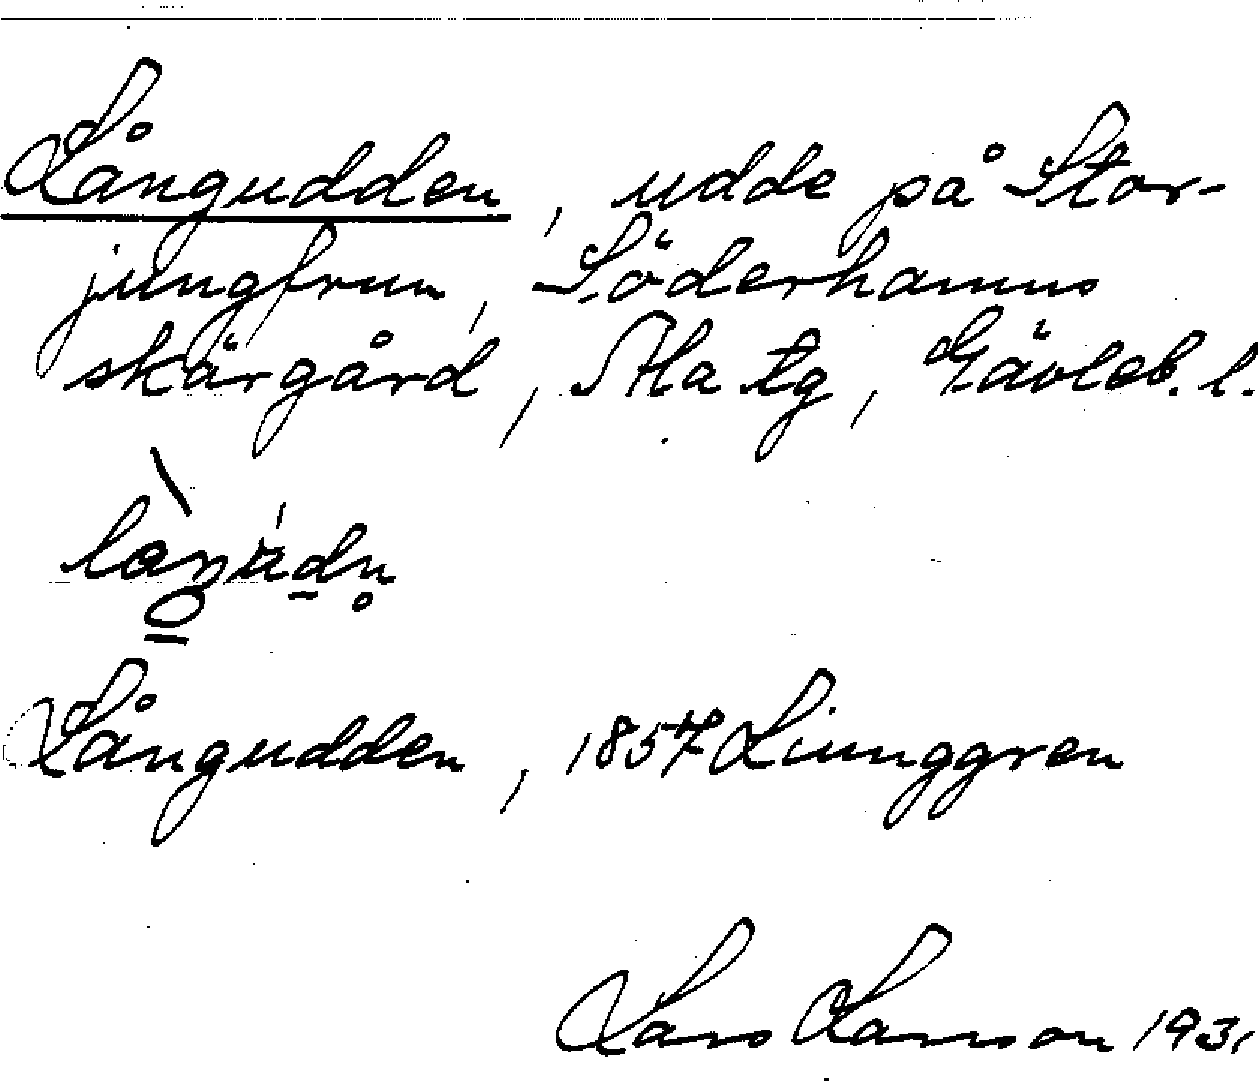 Långudden, udde på Stor-
jungfrun, Söderhamns
skärgård, Ala tg, Gävleb. l.
Långudden, 1857 Ljunggren
Lars Larsson 1931